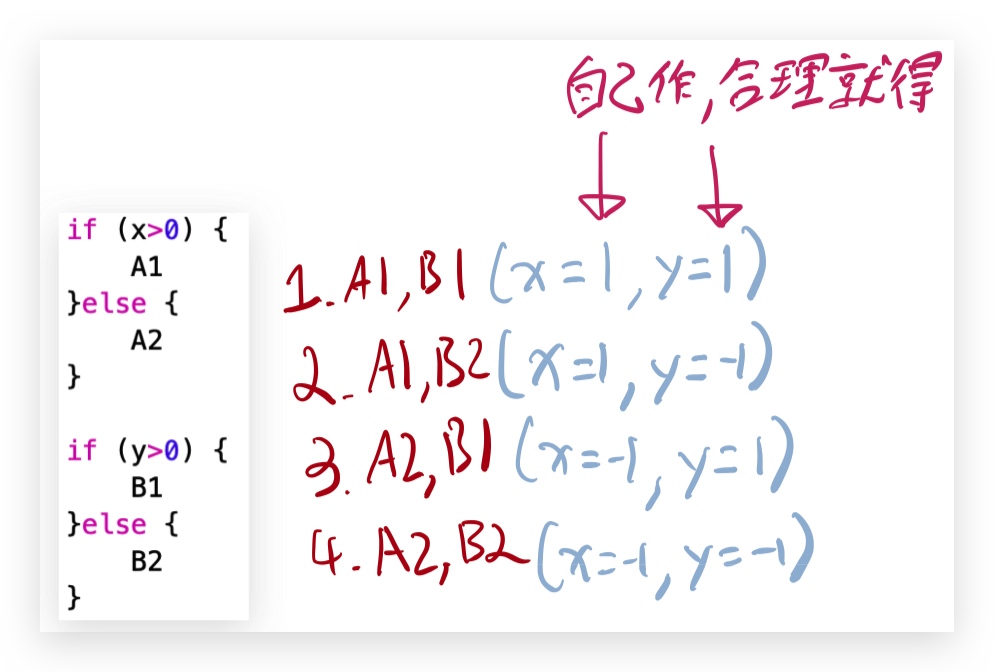 自己作,合理就得
if (x>0) {
A1
}else {
A2
}
if (y>0) {
B1
}else {
B2
}
1. A1,B1 (x=1, y=1)
2. A1,B2 (x=1, y=-1)
3. A2,B1 (x=-1, y=1)
4. A2,B2 (x=-1, y=-1)